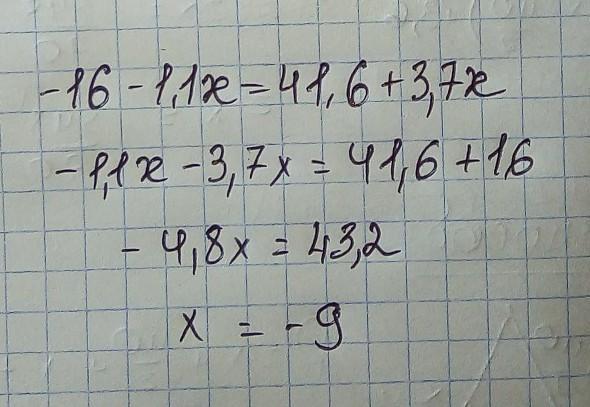 -16 - 1,1x = 41,6 + 3,7x
-1,1x - 3,7x = 41,6 + 1,6
- 4,8x = 43,2
x = -9